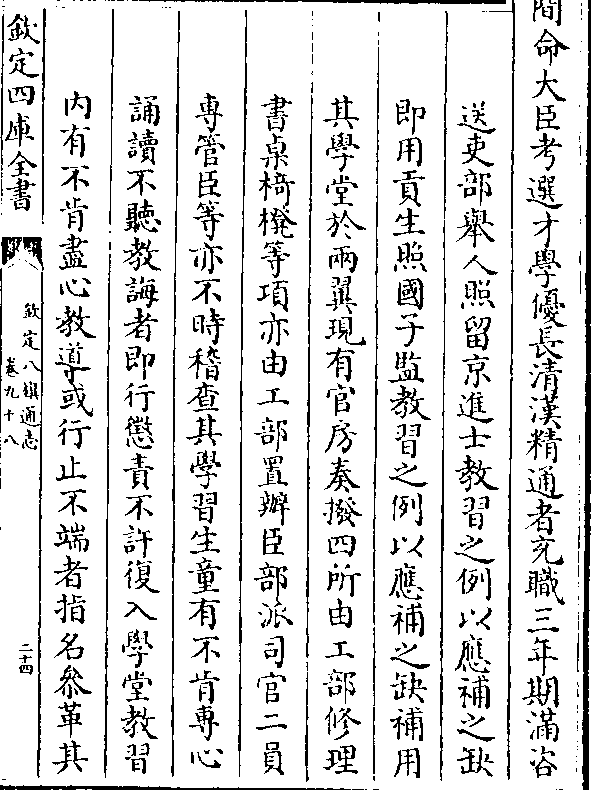 間命大臣考選才學優長清漢精通者充職三年期滿咨
送吏部舉人照留京進士教習之例以應補之缺
即用貢生照國子監教習之例以應補之缺補用
其學堂於兩翼現有官房奏撥四所由工部修理
書桌椅櫈等項亦由工部置辦臣部派司官二員
專管臣等亦不時稽查其學習生童有不肯專心
誦讀不聽教誨者即行懲責不許復入學堂教習
內有不肯盡心教導或行止不端者指名叅革其
欽定四庫全書
欽定八旗通志
卷九十八
二十四